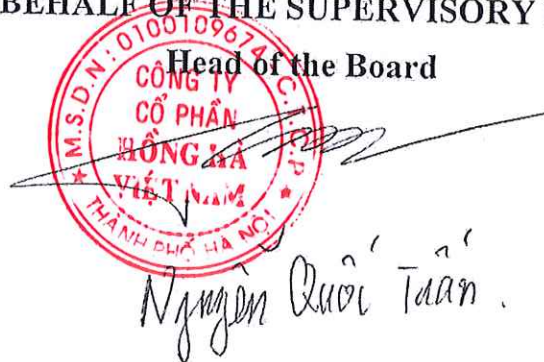 BEHALF OF THE SUPERVISORY
Head of the Board
M.S.D.N: 0100109674 - C.T.C.P
CÔNG TY
CỔ PHẦN
HỒNG HÀ
VIỆT NAM
THÀNH PHỐ HÀ NỘI
Nguyễn Quốc Tuấn.